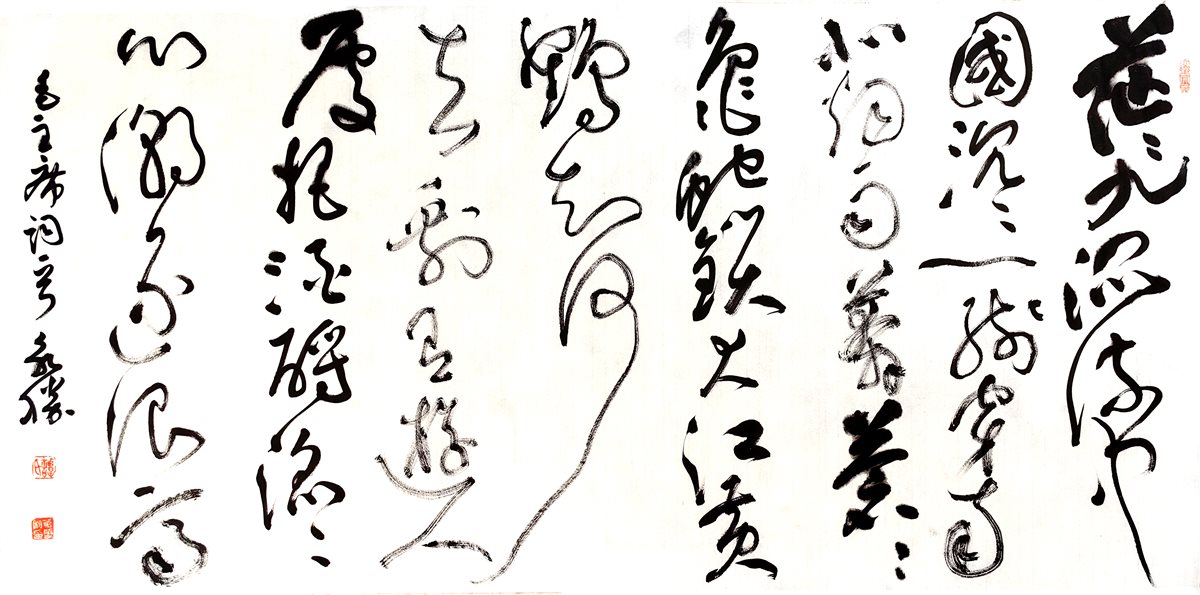 茫々九派流中
國沉々一綫穿南
北烟雨莽蒼々
龜蛇鎖大江黄
鶴知何
去剩有遊人
處把酒酹滔々
心潮逐浪高
毛主席词 永勝